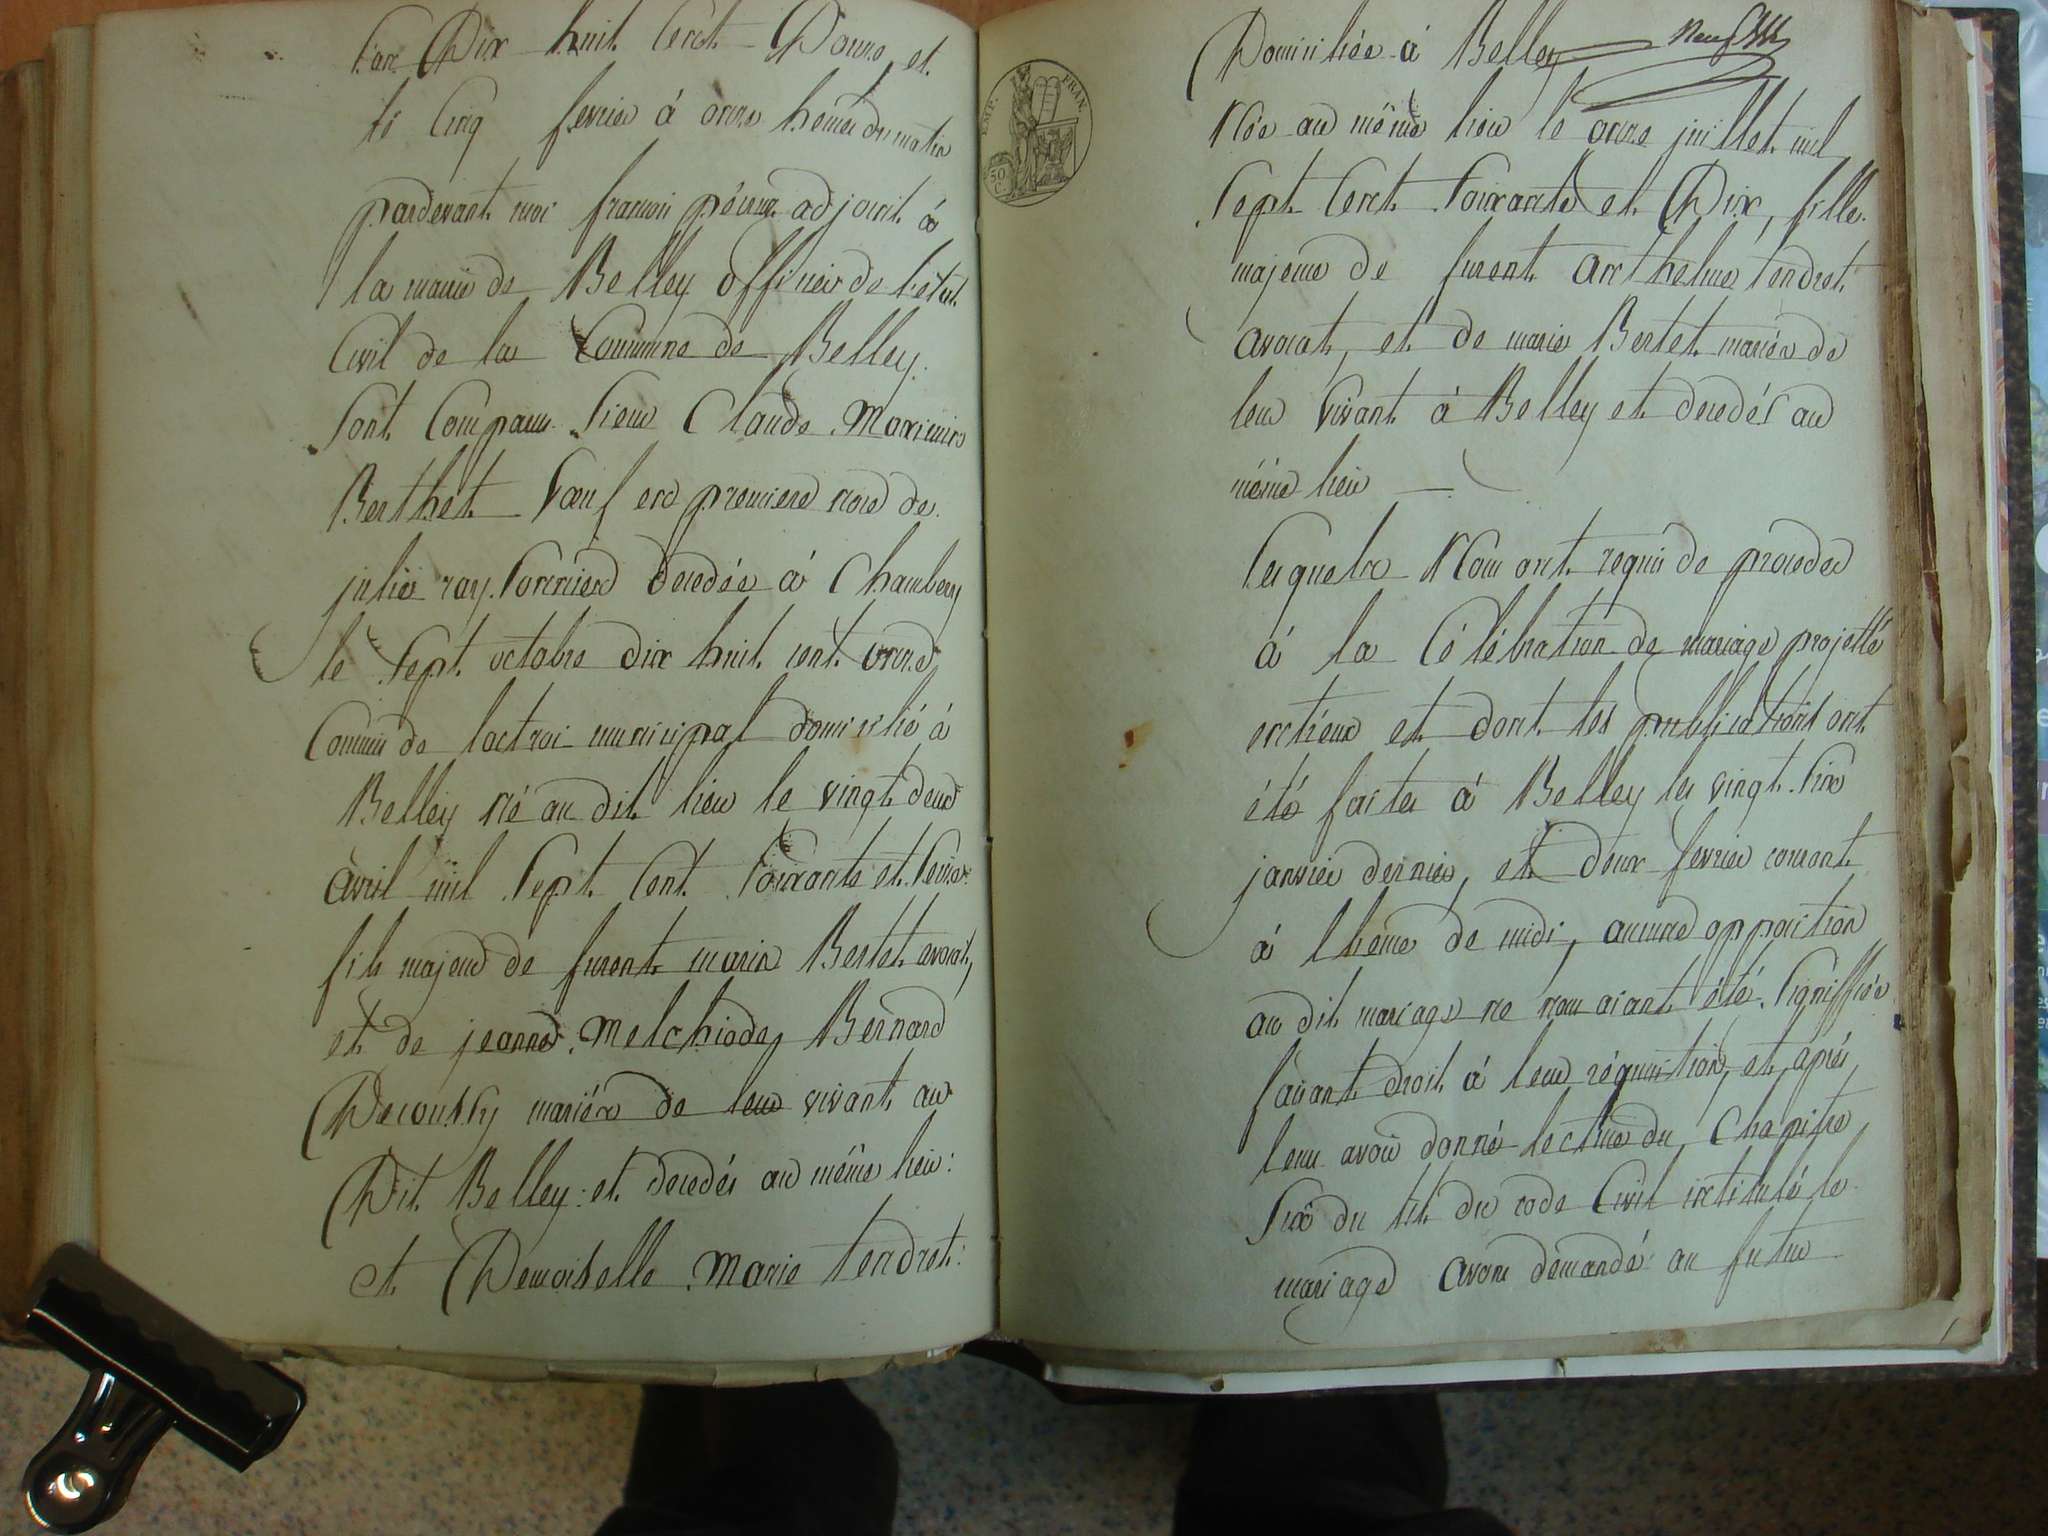 L'an Dix huit Cent Douze et
le Cinq fevrier à onze heures du matin
pardevant moi francois adjoint à
la mairie de Belley officier de l'état
Civil de la Commune de Belley.
Sont Comparus Sieur Claude Marie
Berthet Vœuf en premiere noce de
julie ray decedée à Chambery
le Sept octobre dix huit cent onze
Commis de loctroi municipal domicilié à
Belley né au dit lieu le vingt deux
avril mil Sept Cent Soixante et Seize
fils majeur de furent marin Bertet avocat,
et de jeanne Melchiode Bernard
mariés de leur vivant au
Dit Belley: et decedés au même lieu:
et Demoiselle Marie tendret:
EMP. FRAN.
50 C.
Domiciliée à Belley
Née au même lieu le onze juillet mil
Sept Cent Soixante et Dix, fille
majeure de furent anthelme tendret
avocat, et de marie Bertet mariés de
leur vivant à Belley et decedés au
même lieu
Lesquels Nous ont requis de proceder
à la Célébration de mariage projetté
entr'eux et dont les publications ont
été faites à Belley les vingt Six
janvier dernier, et deux fevrier courant
à lheure de midi, aucune opposition
au dit mariage ne nous aiant été Signiffiée
faisant droit à leur réquisition, et après
leur avoir donné lecture du Chapitre
Six du tit. du code Civil intitulé le
mariage avons demandé au futur